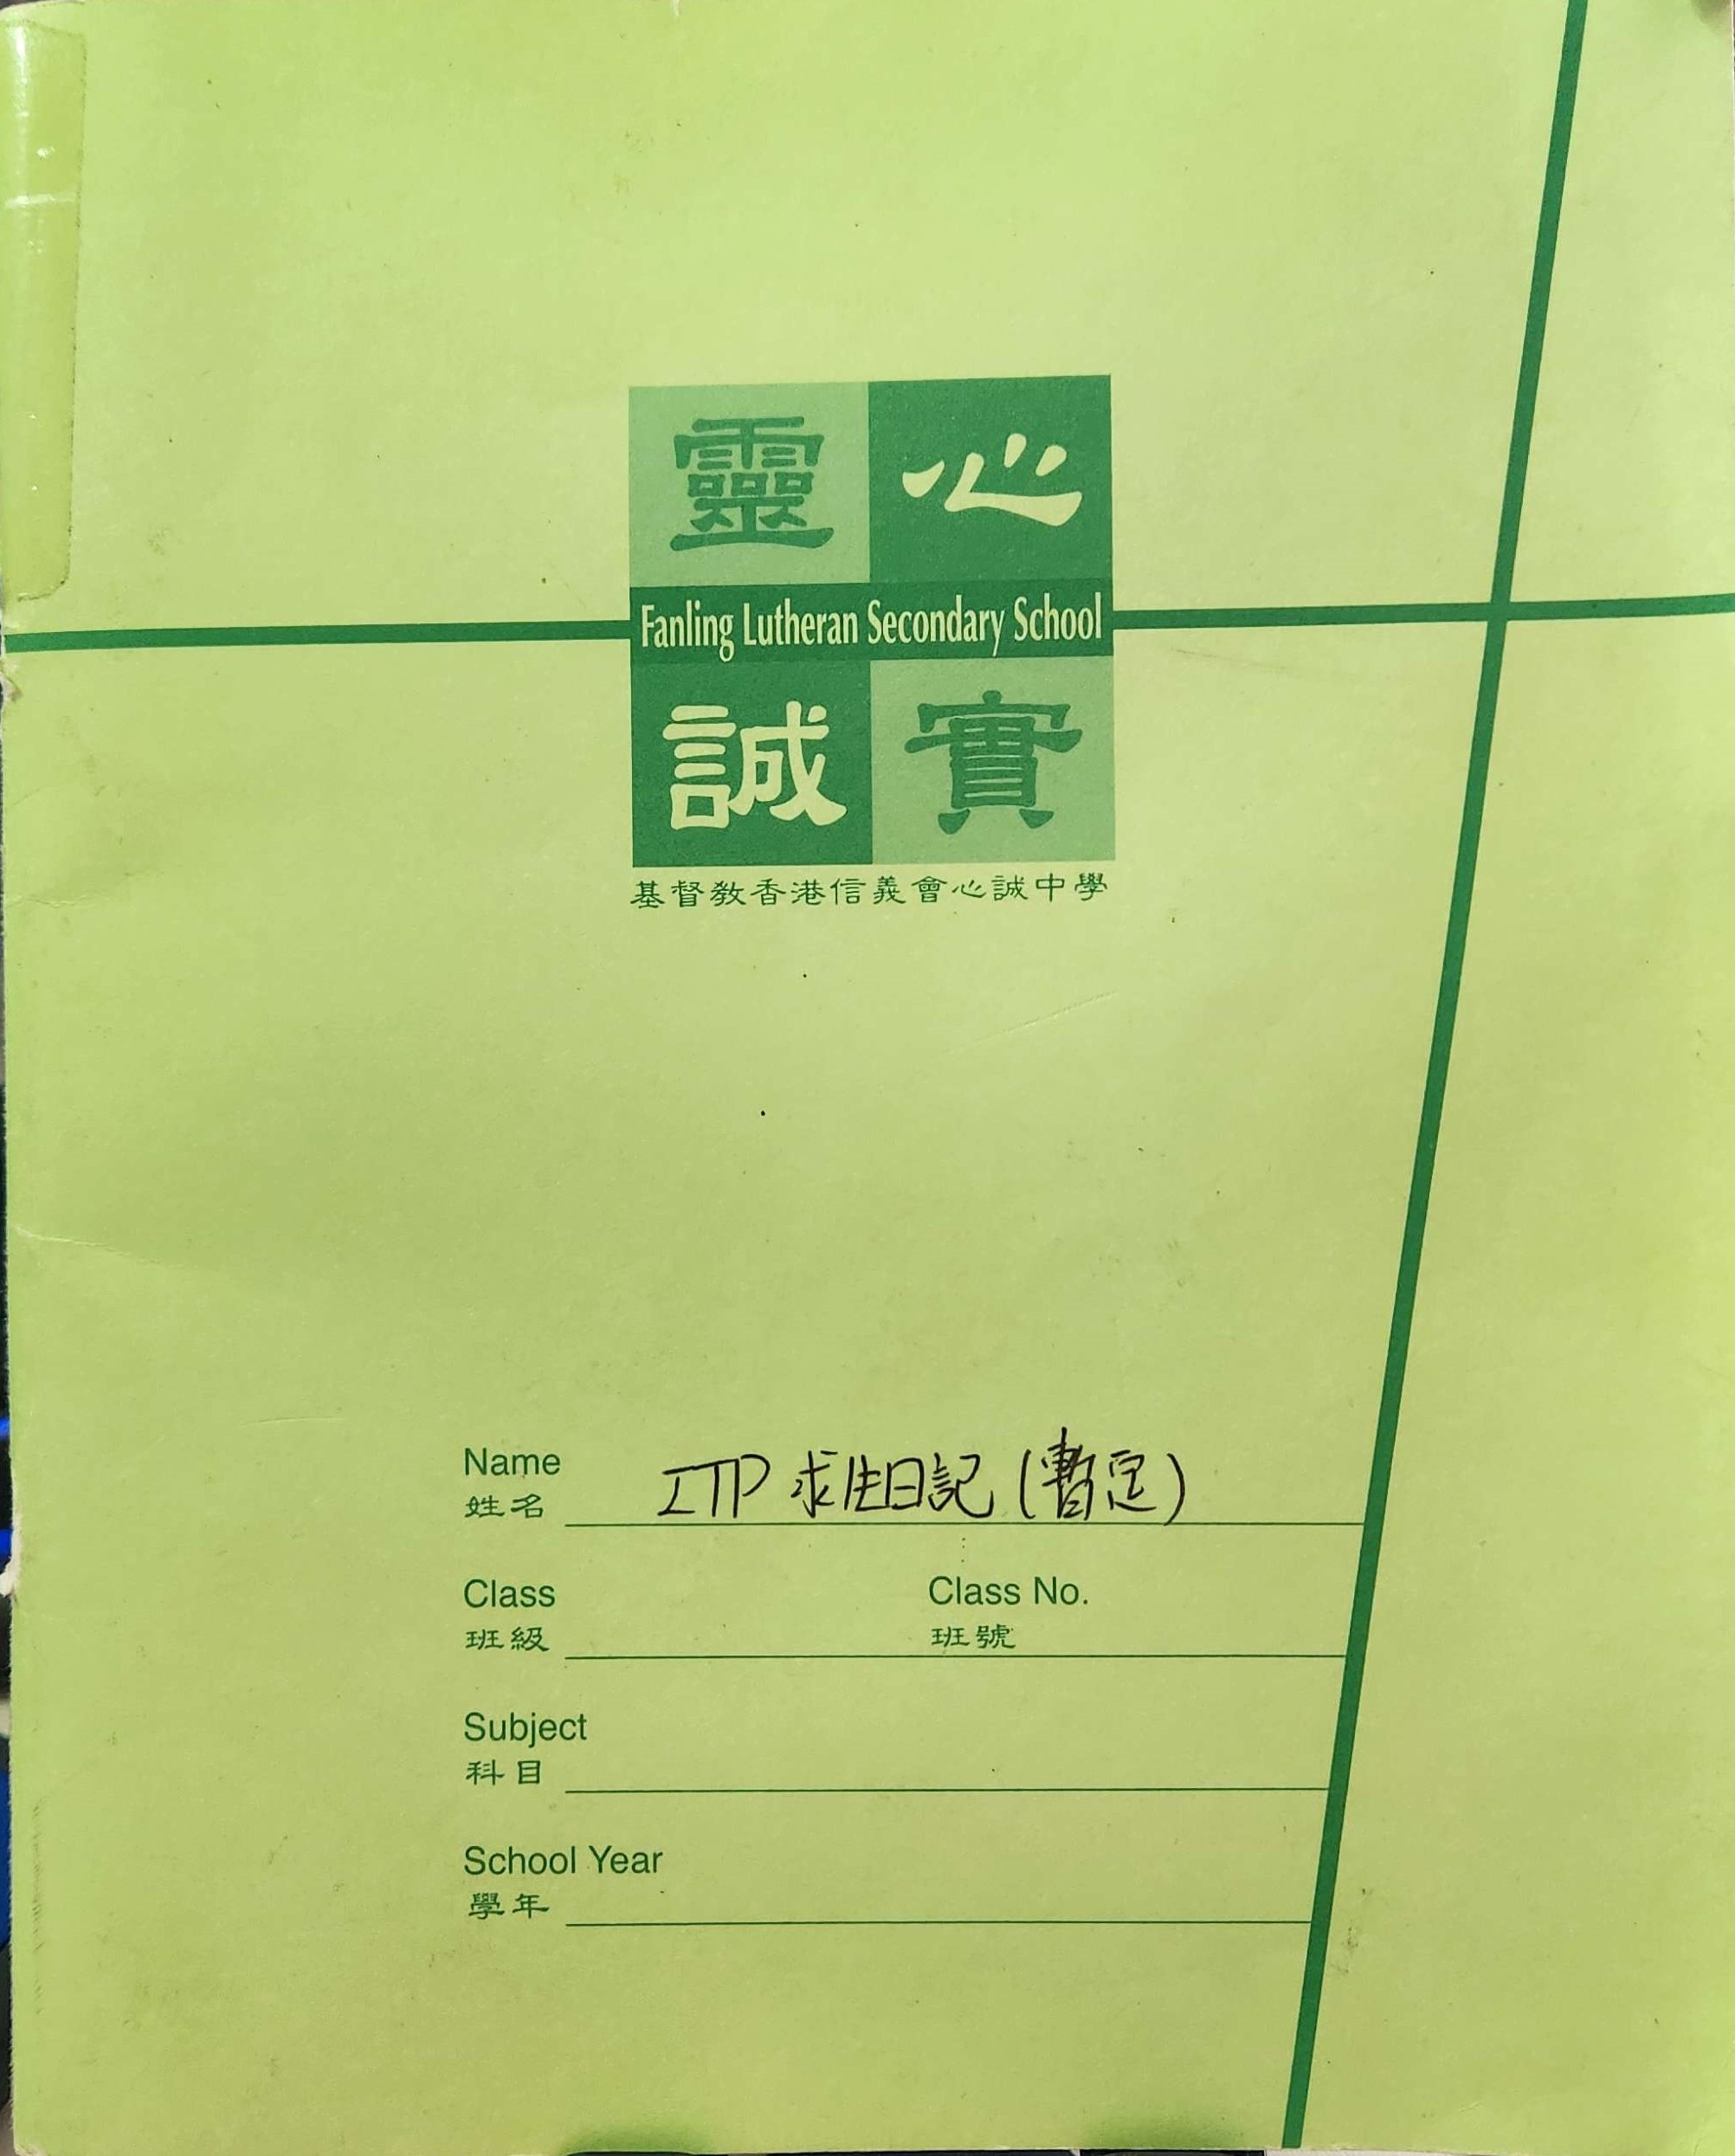 靈心
Fanling Lutheran Secondary School
誠實
基督教香港信義會心誠中學
Name
姓名 ITP 求生日記(暫定)
Class Class No.
班級 班號
Subject
科目
School Year
學年